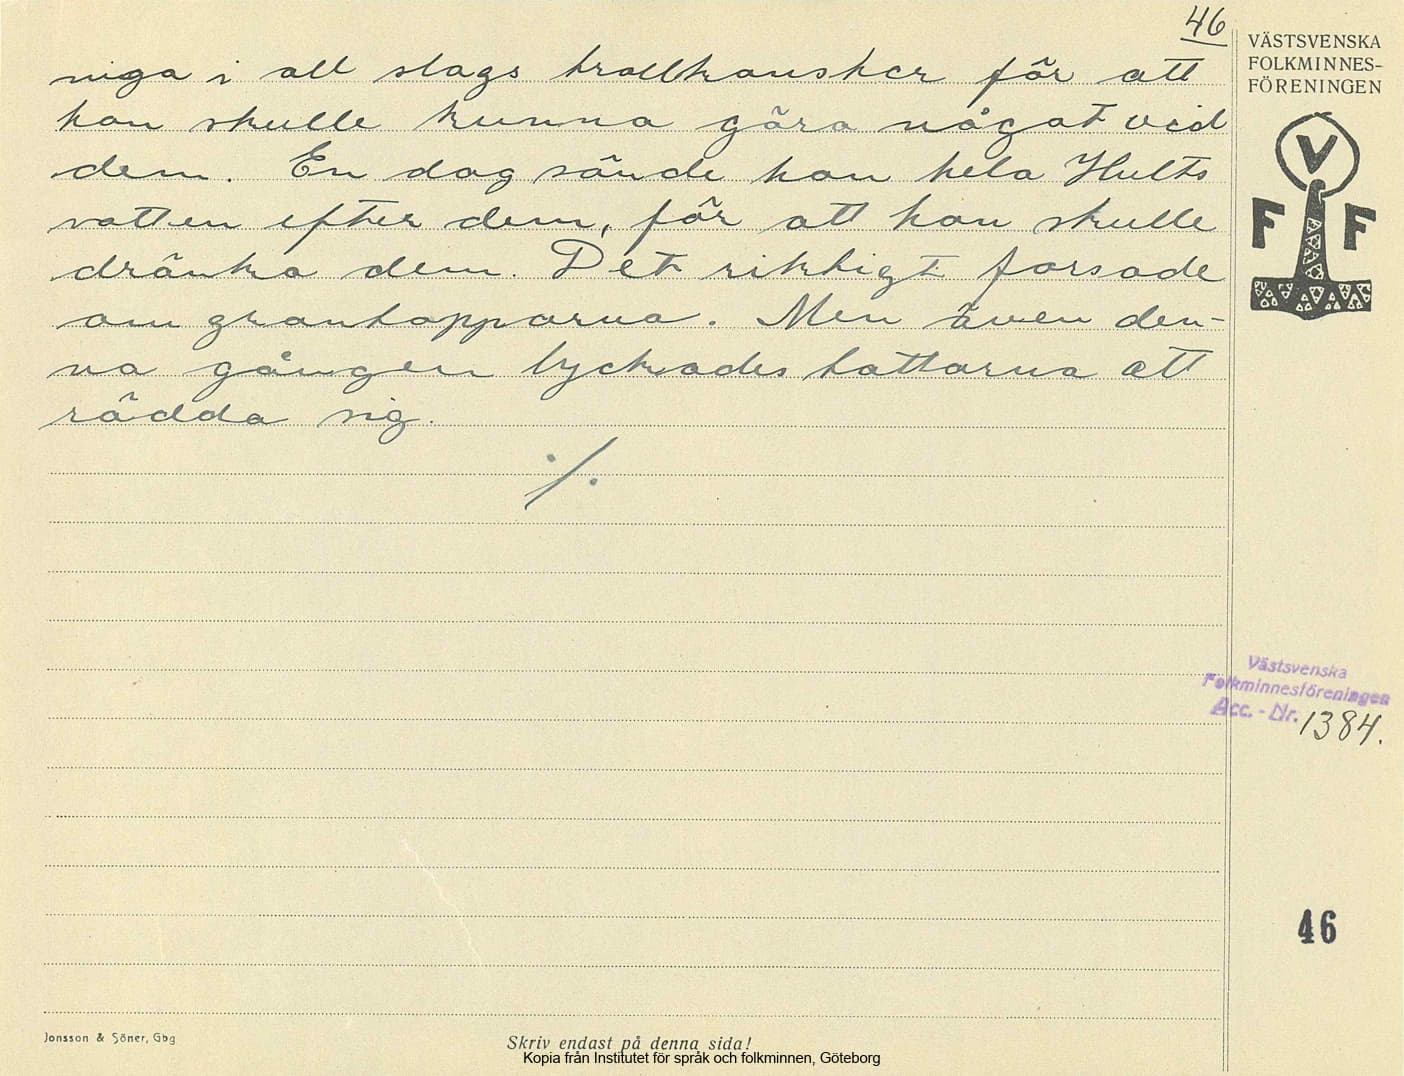 46
niga i all slags trollkonster för att
han skulle kunna göra något vid
dem. En dag sände han hela Hults
vatten efter dem, för att han skulle
dränka dem. Det riktigt forsade
om grantopparna. Men även den-
na gången lyckades tattarna att
rädda sig.
./.
VÄSTSVENSKA
FOLKMINNES-
FÖRENINGEN
V
F F
Västsvenska
Folkminnesföreningen
Acc. - Nr. 1384.
46
Jonsson & Söner, Gbg
Skriv endast på denna sida!
Kopia från Institutet för språk och folkminnen, Göteborg